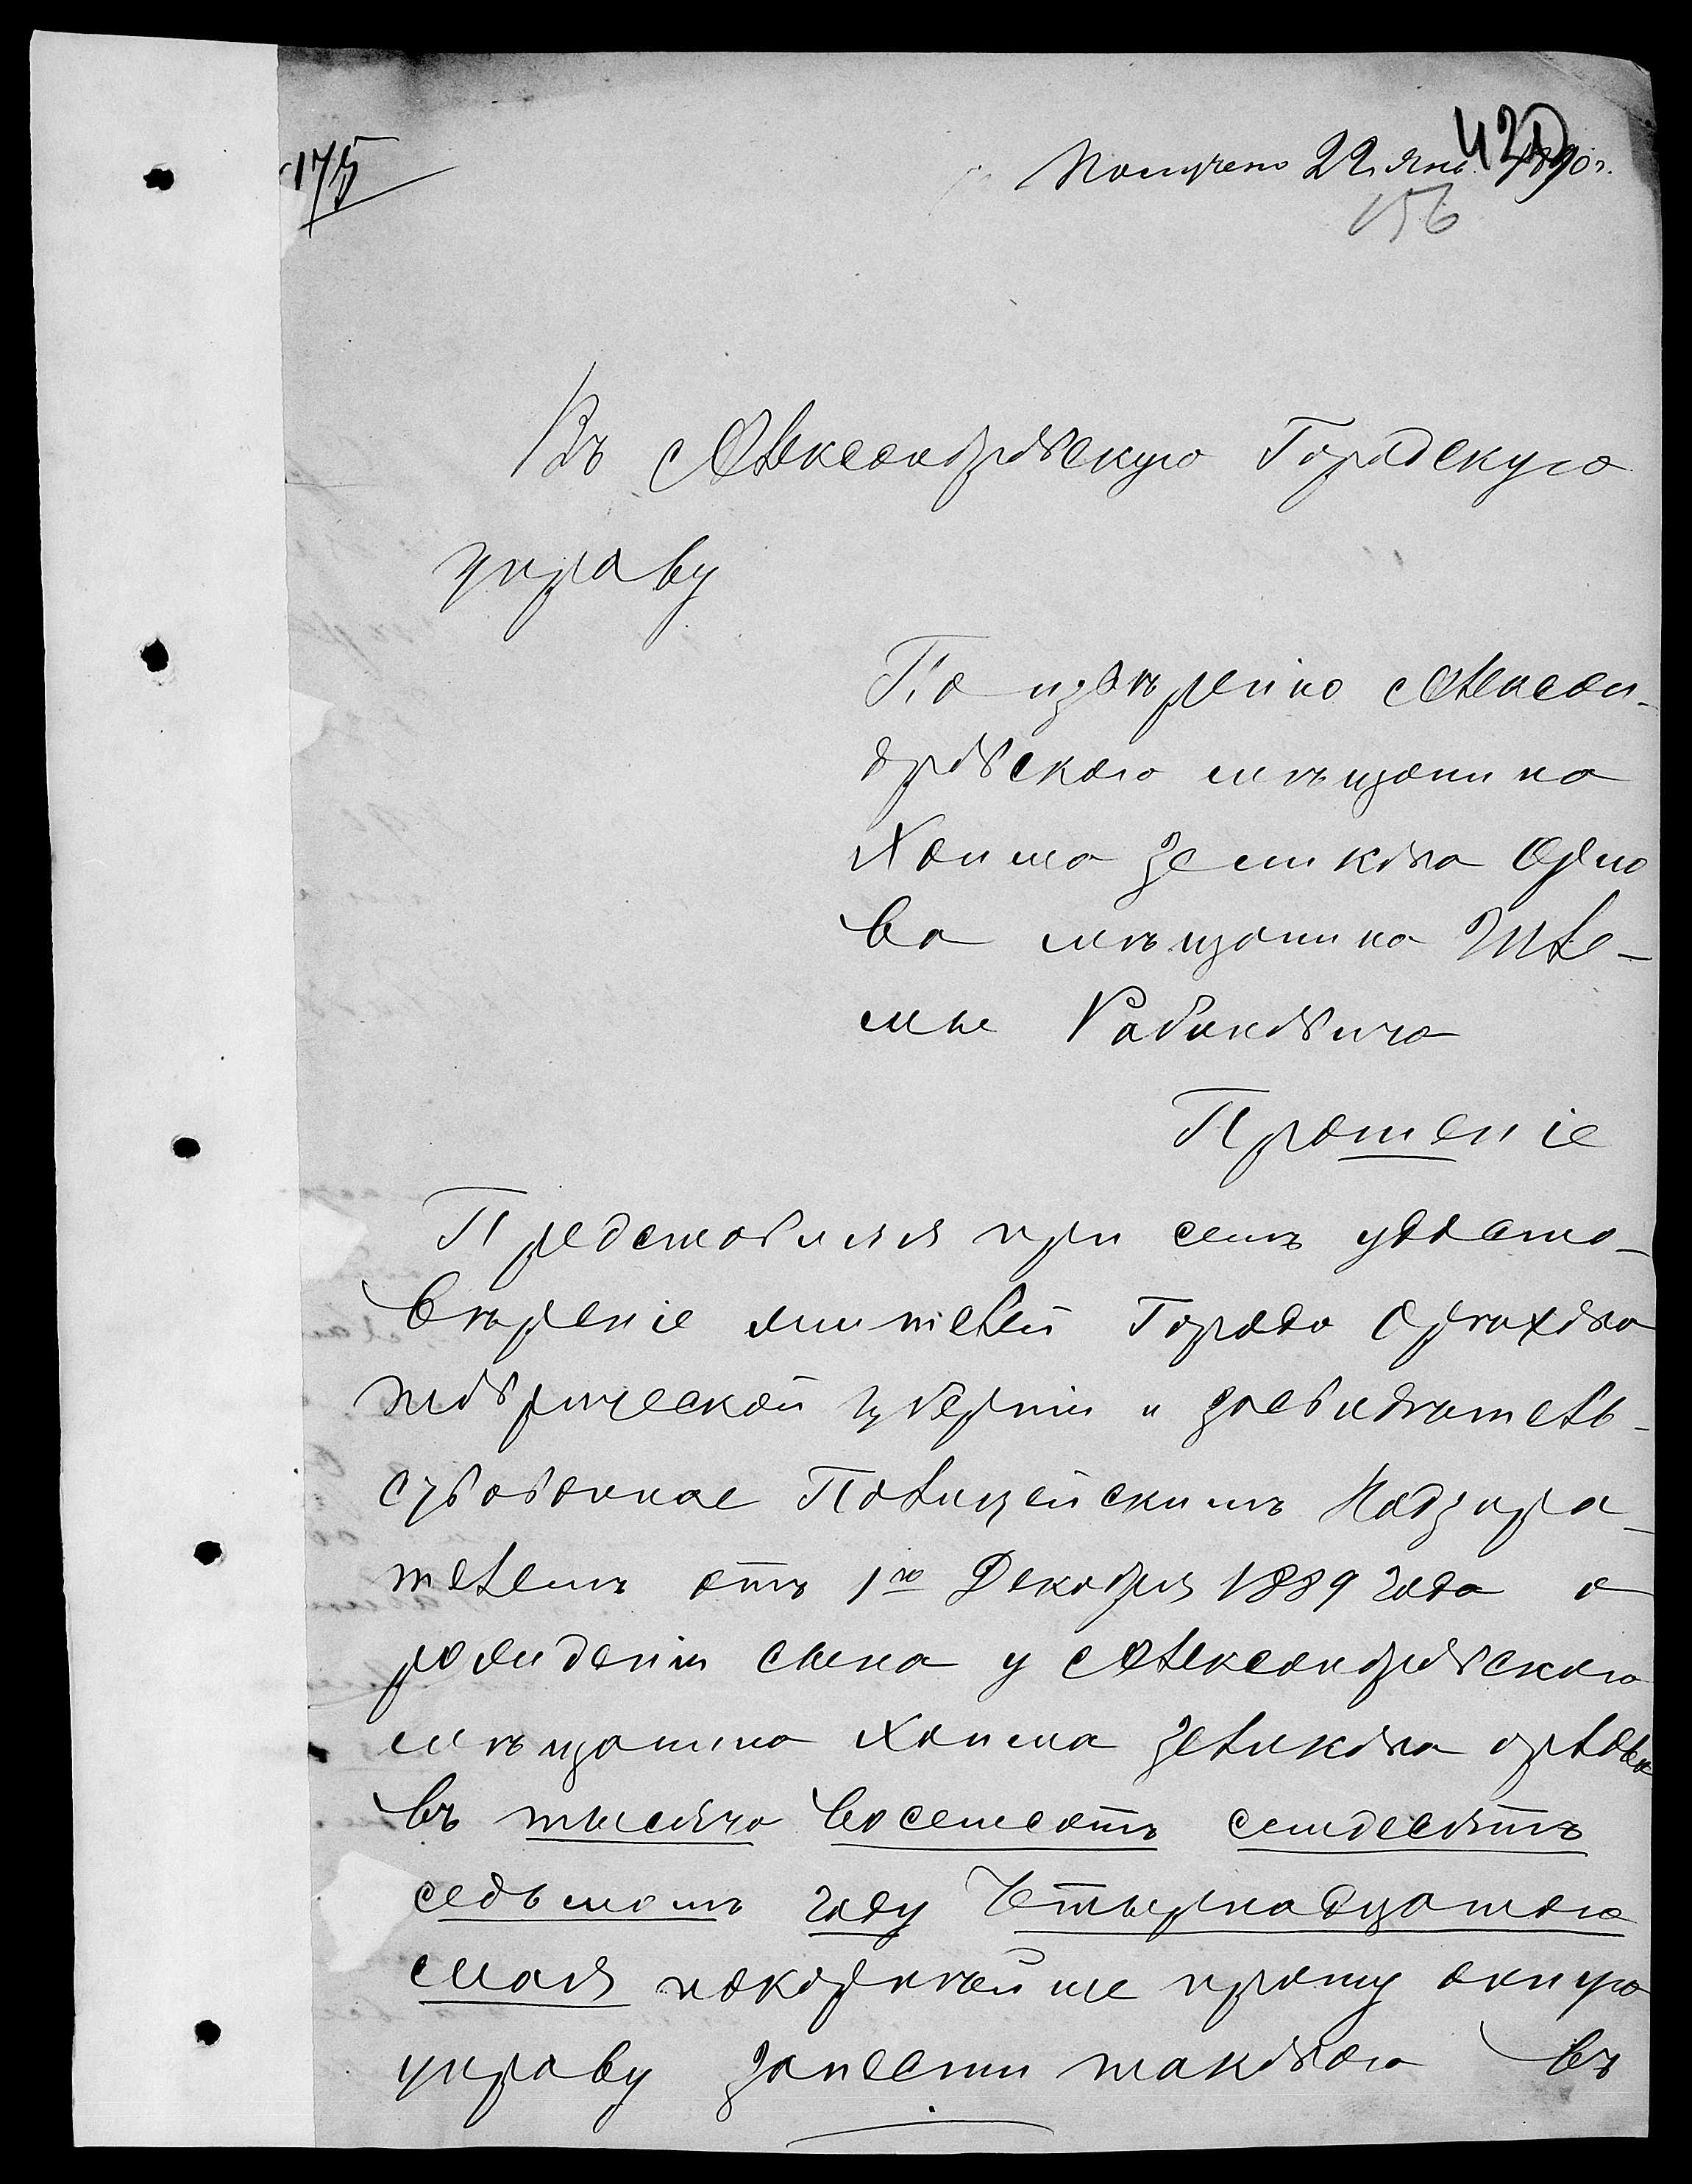 175
Получено 22 Янв. 1890 г.
421
156
Въ Александровскую Городскую
управу
По издѣренію Алексан-
дровскаго мѣщанина
Хаима Зеликова Орло
ва мѣщанина Шле-
мы Рабиновича
Прошеніе
Представляя при семъ удосто-
вѣреніе жителей Города Орѣхова
Таврической губерніи и засвидѣтель-
ствованное Полицейскимъ Надзира-
телемъ отъ 1го Декабря 1889 года о
рожденіи сына у Александровскаго
мѣщанина Хаима Зеликова Орлова
въ тысяча восемсотъ семдесятъ
седьмомъ году Четырнадцатаго
мая покорнѣйше прошу оную
управу занести таковаго въ